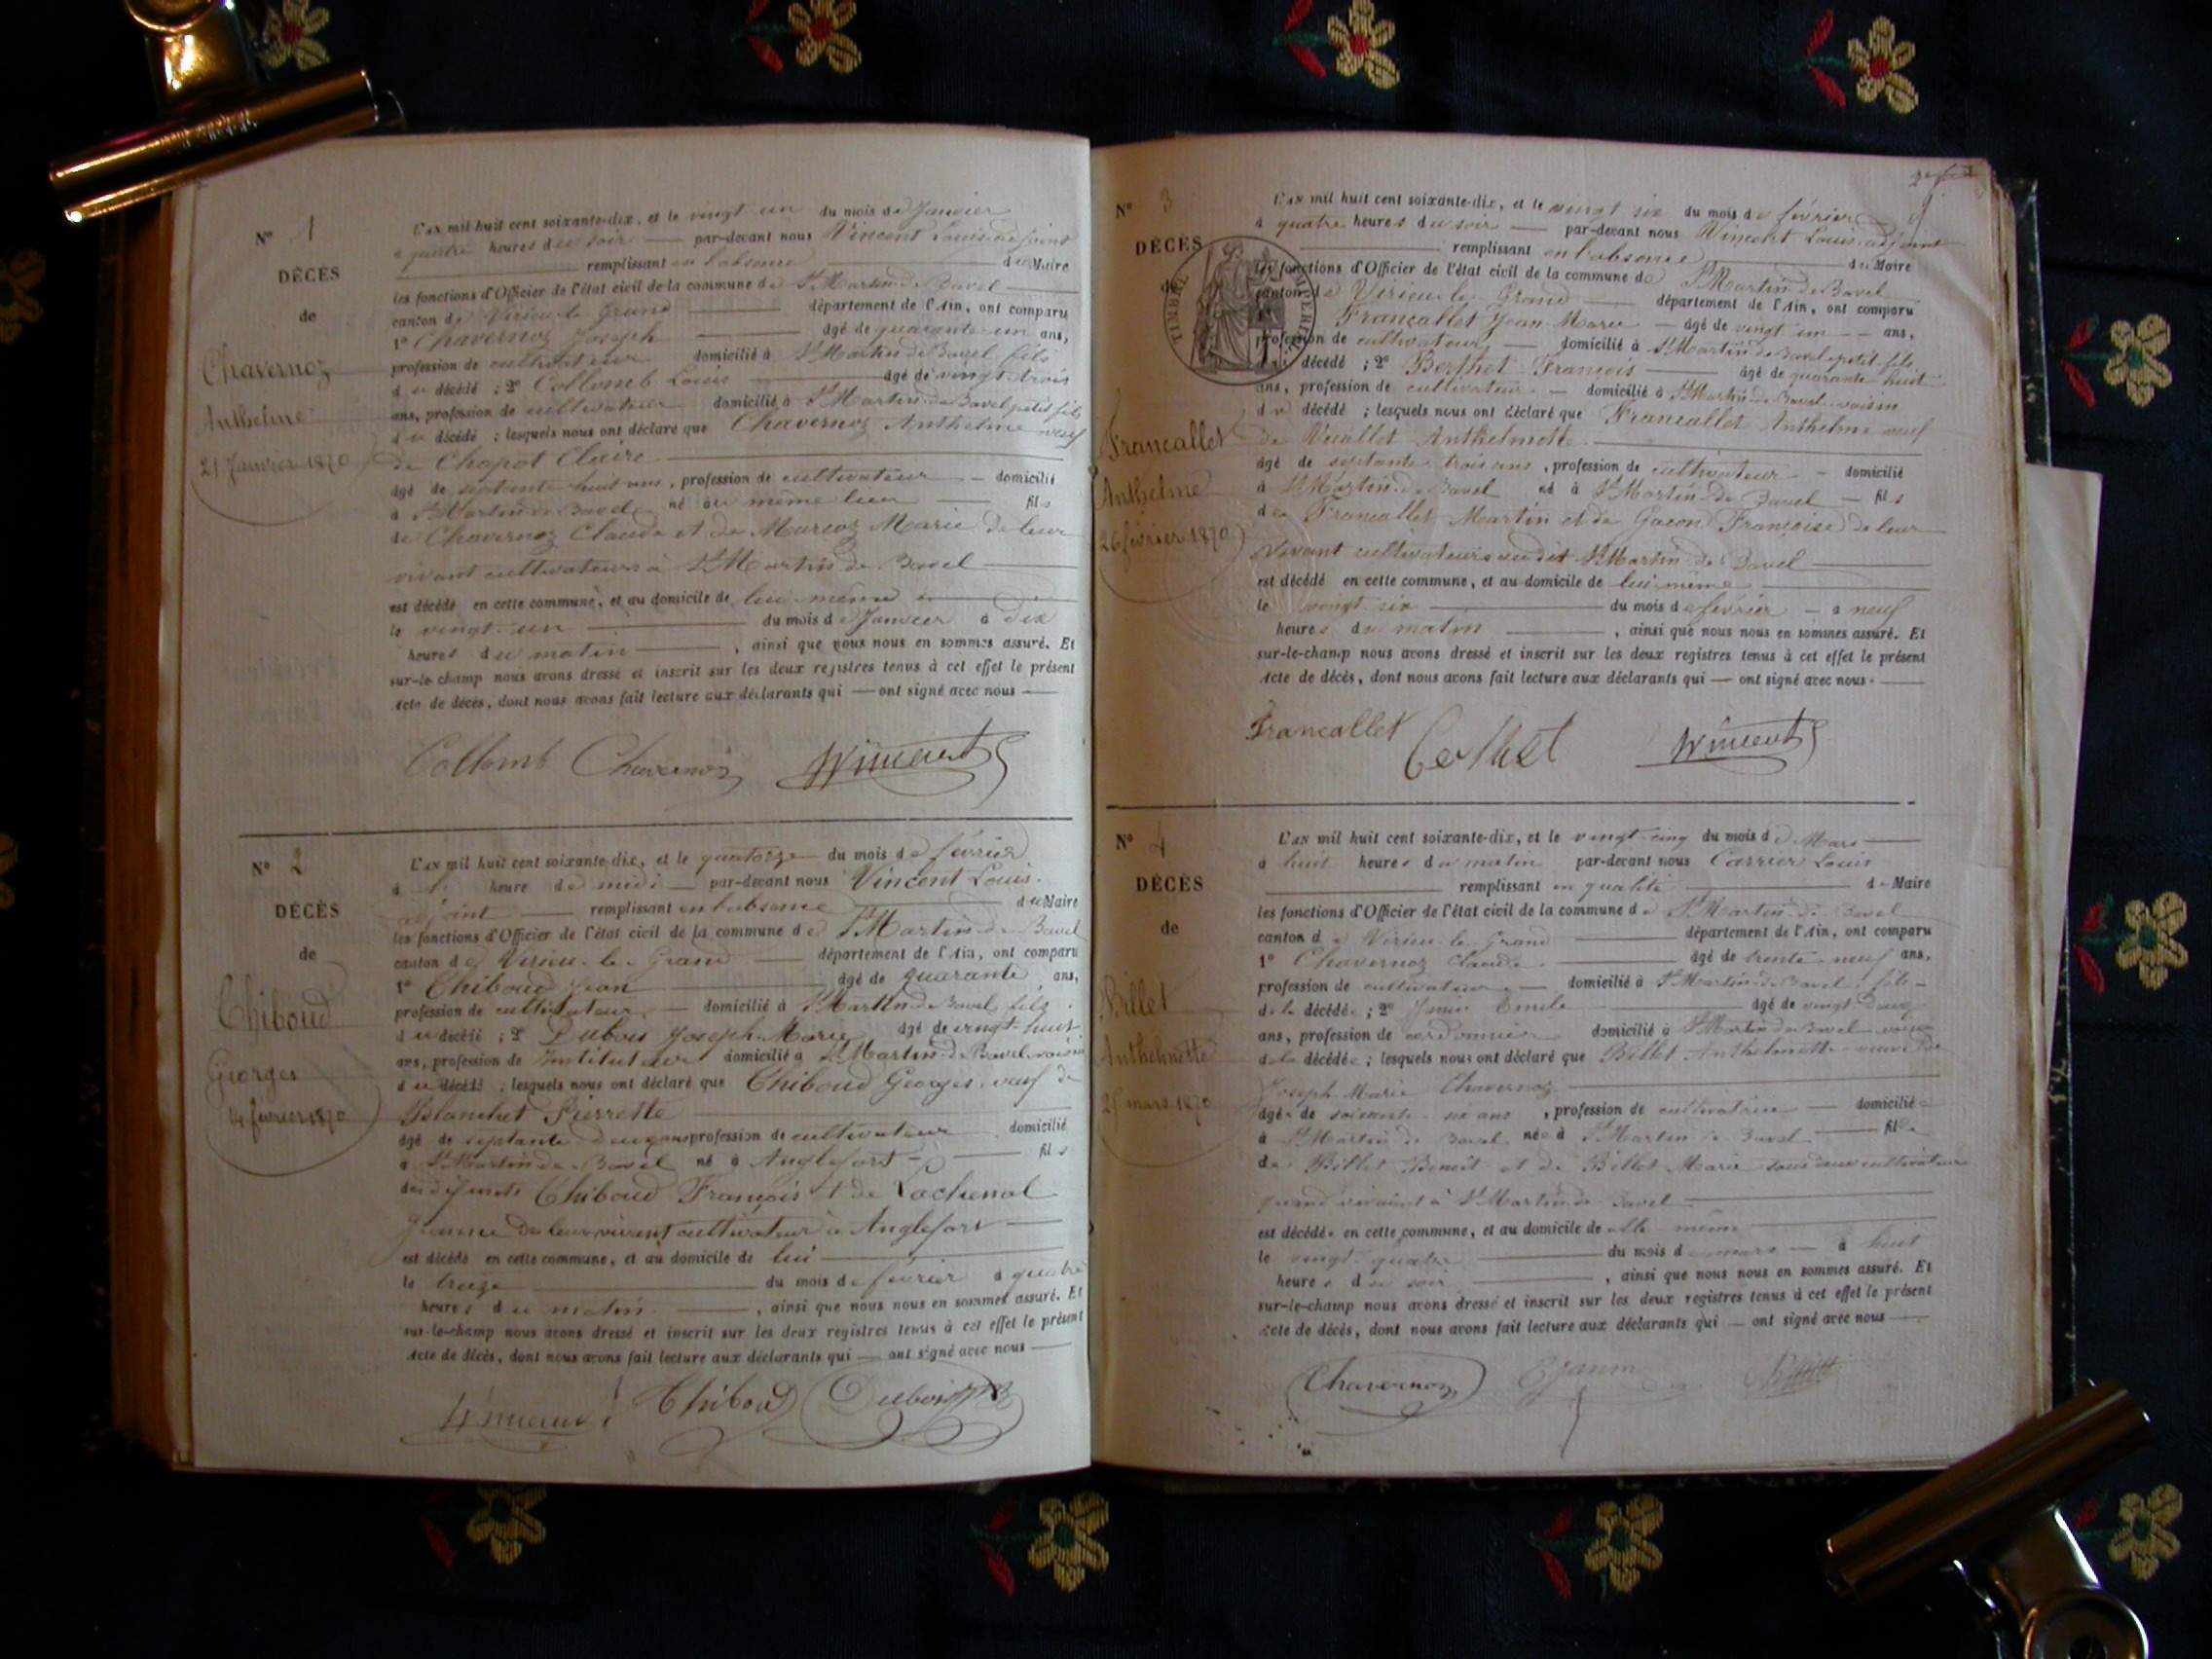 N° 1
DÉCÈS
de
Chavernoz
Anthelme
21 Janvier 1870
L'AN mil huit cent soixante-dix, et le vingt un du mois de Janvier
à quatre heures du soir — par-devant nous Vincent Louis adjoint
remplissant en l'absence du Maire
les fonctions d'Officier de l'état civil de la commune de St Martin de Bavel
canton de Virieu le Grand département de l'Ain, ont comparu
1° Chavernoz Joseph âgé de quarante un ans,
profession de cultivateur domicilié à St Martin de Bavel fils
du décédé ; 2° Collomb Louis âgé de vingt trois
ans, profession de cultivateur domicilié à St Martin de Bavel petit fils
du décédé ; lesquels nous ont déclaré que Chavernoz Anthelme veuf
de Chapot Claire
âgé de septante huit ans, profession de cultivateur — domicilié
à St Martin de Bavel né au même lieu fils
de Chavernoz Claude et de Marcoz Marie de leur
vivant cultivateurs à St Martin de Bavel
est décédé en cette commune, et au domicile de lui même
le vingt un du mois de Janvier à dix
heures du matin, ainsi que nous nous en sommes assuré. Et
sur-le-champ nous avons dressé et inscrit sur les deux registres tenus à cet effet le présent
Acte de décès, dont nous avons fait lecture aux déclarants qui — ont signé avec nous —
Collomb Chavernoz Vincent
N° 2
DÉCÈS
de
Chiboud
Georges
14 février 1870
L'AN mil huit cent soixante-dix, et le quatorze du mois de février
à heure de midi — par-devant nous Vincent Louis
adjoint remplissant en l'absence du Maire
les fonctions d'Officier de l'état civil de la commune de St Martin de Bavel
canton de Virieu-le-Grand département de l'Ain, ont comparu
1° Chiboud Jean âgé de quarante ans,
profession de cultivateur — domicilié à St Martin de Bavel fils
du décédé ; 2° Dubois Joseph Marie âgé de vingt huit
ans, profession de Instituteur domicilié à St Martin de Bavel voisin
du décédé ; lesquels nous ont déclaré que Chiboud Georges, veuf de
Blanchet Pierrette
âgé de septante deux ans profession de cultivateur domicilié
à St Martin de Bavel né à Anglefort — fils
des défunts Chiboud François et de Lachenal
Jeanne de leur vivant cultivateur à Anglefort
est décédé en cette commune, et au domicile de lui
le treize du mois de février à quatre
heures du matin, ainsi que nous nous en sommes assuré. Et
sur-le-champ nous avons dressé et inscrit sur les deux registres tenus à cet effet le présent
Acte de décès, dont nous avons fait lecture aux déclarants qui — ont signé avec nous —
Vincent Chiboud Dubois
N° 3
DÉCÈS
TIMBRE IMPÉRIAL
Francallet
Anthelme
26 février 1870
L'AN mil huit cent soixante-dix, et le vingt six du mois de février
à quatre heures du soir — par-devant nous Vincent Louis adjoint
remplissant en l'absence du Maire
les fonctions d'Officier de l'état civil de la commune de St Martin de Bavel
canton de Virieu-le-Grand département de l'Ain, ont comparu
Francallet Jean Marie — âgé de vingt un — ans,
profession de cultivateur — domicilié à St Martin de Bavel petit fils
du décédé ; 2° Berthet François âgé de quarante huit
ans, profession de cultivateur — domicilié à St Martin de Bavel voisin
du décédé ; lesquels nous ont déclaré que Francallet Anthelme veuf
de Vuillet Anthelmette
âgé de septante trois ans, profession de cultivateur — domicilié
à St Martin de Bavel né à St Martin de Bavel — fils
de Francallet Martin et de Gacon Françoise de leur
vivant cultivateurs au dit St Martin de Bavel
est décédé en cette commune, et au domicile de lui même
le vingt six du mois de février — à neuf
heures du matin, ainsi que nous nous en sommes assuré. Et
sur-le-champ nous avons dressé et inscrit sur les deux registres tenus à cet effet le présent
Acte de décès, dont nous avons fait lecture aux déclarants qui — ont signé avec nous. —
Francallet Berthet Vincent
N° 4
DÉCÈS
de
Billet
Anthelmette
25 mars 1870
L'AN mil huit cent soixante-dix, et le vingt cinq du mois de Mars
à huit heures du matin par-devant nous Carrier Louis
remplissant en qualité de Maire
les fonctions d'Officier de l'état civil de la commune de St Martin de Bavel
canton de Virieu le Grand département de l'Ain, ont comparu
1° Chavernoz Claude âgé de trente neuf ans,
profession de cultivateur — domicilié à St Martin de Bavel fils
de la décédée ; 2° Janin Emile âgé de vingt deux
ans, profession de cordonnier domicilié à St Martin de Bavel voisin
de la décédée ; lesquels nous ont déclaré que Billet Anthelmette veuve de
Joseph Marie Chavernoz
âgée de soixante six ans, profession de cultivatrice — domiciliée
à St Martin de Bavel née à St Martin de Bavel fille
de Billet Benoît et de Billet Marie tous deux cultivateurs
quand vivaient à St Martin de Bavel
est décédée en cette commune, et au domicile de elle même
le vingt quatre du mois de mars — à huit
heures du soir, ainsi que nous nous en sommes assuré. Et
sur-le-champ nous avons dressé et inscrit sur les deux registres tenus à cet effet le présent
Acte de décès, dont nous avons fait lecture aux déclarants qui — ont signé avec nous —
Chavernoz E Janin